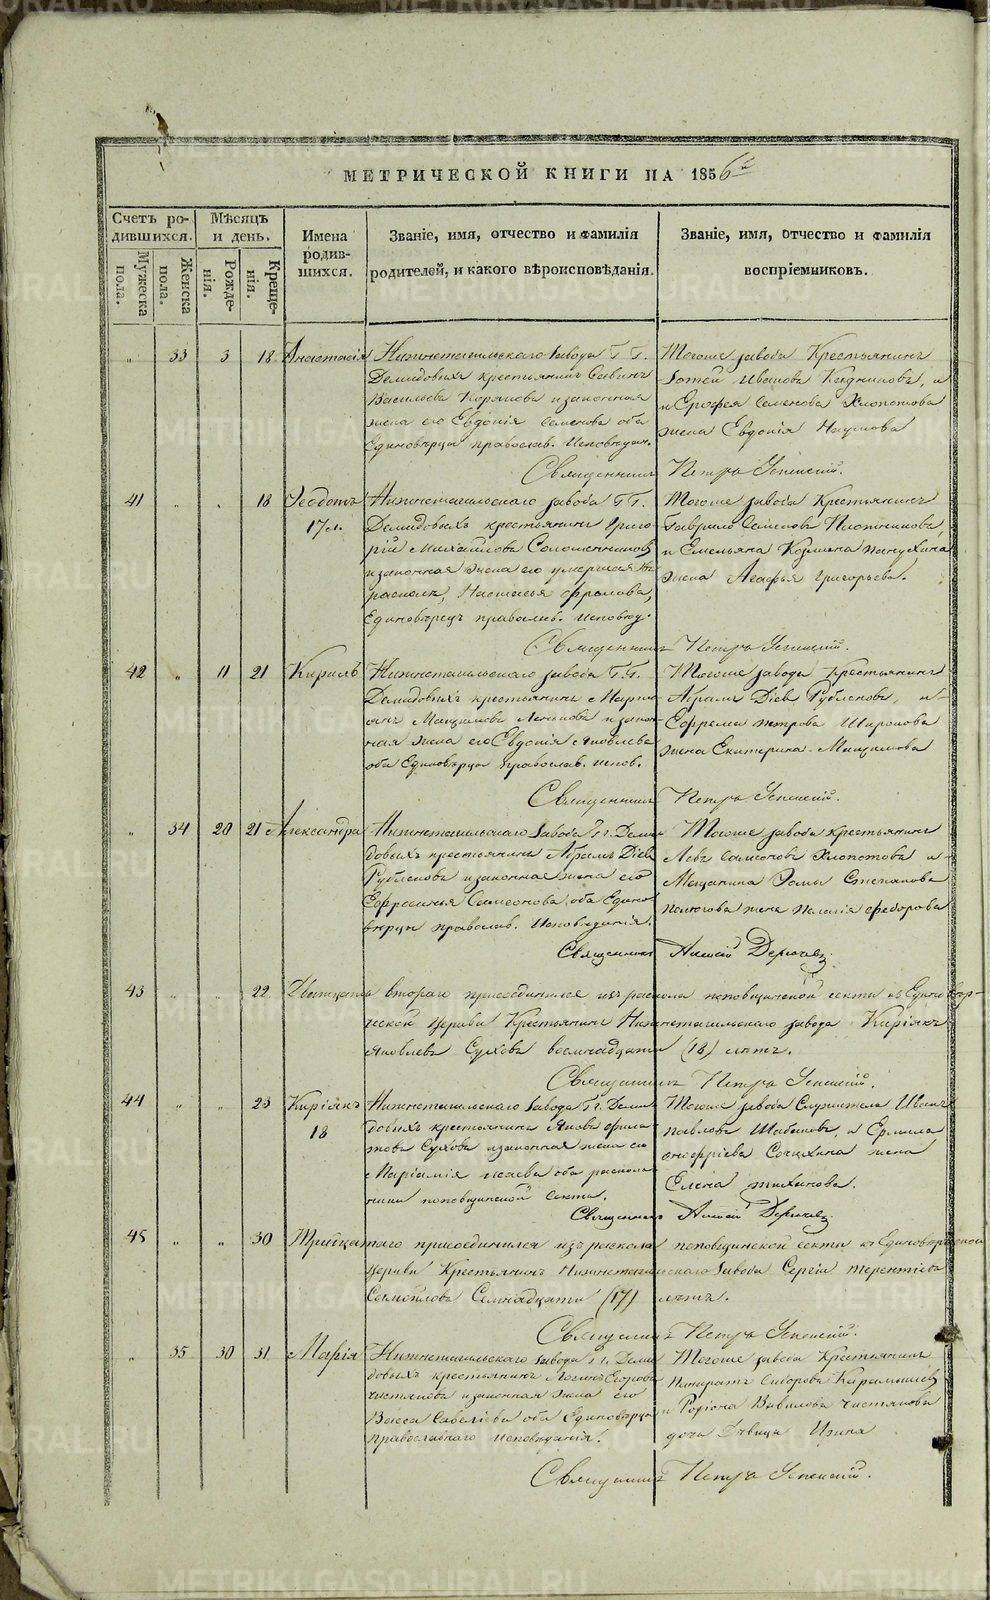 МЕТРИЧЕСКОЙ КНИГИ НА 1856
Счетъ родившихся.
Мужеска пола.
Женска пола.
Мѣсяцъ и день.
Рожденія.
Крещенія.
Имена родившихся.
Званіе, имя, отчество и фамилія родителей, и какого вѣроисповѣданія.
Званіе, имя, отчество и фамилія воспріемниковъ.
" 33 3 18 Анастасія
Нижнетагильскаго завода Г.Г.
Демидовыхъ крестьянинъ Савинъ
Васильевъ и законная
жена его Евдокія Семенова оба
Единовѣрцы православ. Исповѣдан.
Тогоже завода Крестьянинъ
Фотей Ивановъ и
Ерофея Семенова Хлопотова
жена Евдокія Наумова
Священникъ Петръ Успенскій.
41 " " 18 Ѳеодотъ
17 л.
Нижнетагильскаго завода Г.Г.
Демидовыхъ крестьянинъ Григо-
рій Михайловъ Солошенниковъ
и законная жена его умершая въ
расколѣ, Настасья Фролова,
Единовѣрецъ православ. исповѣд.
Тогоже завода Крестьянинъ
Гаврило Семеновъ Плотниковъ
и Емельяна
жена Агафья Григорьева.
Священникъ Петръ Успенскій.
42 " 11 21 Кирилъ
Нижнетагильскаго завода Г.Г.
Демидовыхъ крестьянинъ Марти-
анъ Максимовъ и закон-
ная жена его Евдокія Яковлева
оба Единовѣрцы православ. испов.
Тогоже завода Крестьянинъ
Абрамъ Діевъ Рубленовъ, и
Ефрема Петрова Широкова
жена Екатерина Максимова
Священникъ Петръ Успенскій.
" 34 20 21 Александра
Нижнетагильскаго завода Гг. Деми-
довыхъ крестьянинъ Абрамъ Діевъ
Рубленовъ и законная жена его
Ефросинья Семеонова, оба Едино-
вѣрцы православ. Исповѣданія.
Тогоже завода крестьянинъ
Левъ Семеновъ Хлопотовъ и
Мещанина Ѳомы Степанова
жена Пелагія Федорова
Священникъ Алексій
43 " " 22
Двадцать втораго присоединился изъ раскола поповщинской секты къ Единовѣр-
ческой Церкви Крестьянинъ Нижнетагильскаго завода Киріякъ
Яковлевъ Суховъ восмнадцати (18) лѣтъ.
Священникъ Петръ Успенскій.
44 " " 23 Киріякъ
18
Нижнетагильскаго завода Гг. Деми-
довыхъ крестьянина Якова Фила-
това Сухова и законная жена его
Маріамія Исаева оба расколь-
ники поповщинской секты.
Тогоже завода Служителя Иванъ
Павловъ Шабановъ, и Ермила
Онофріева жена
Елена Тихонова.
Священникъ Алексій
45 " " 30
Тридцатаго присоединился изъ раскола поповщинской секты къ Единовѣрческой
Церкви Крестьянинъ Нижнетагильскаго завода Сергій Терентіевъ
Самойловъ Семнадцати (17) лѣтъ.
Священникъ Петръ Успенскій.
" 35 30 31 Марія
Нижнетагильскаго завода Гг. Деми-
довыхъ крестьянинъ Логинъ Егоровъ
Чистяковъ и законная жена его
Васса Савеліева оба Единовѣрцы
православнаго исповѣданія.
Тогоже завода Крестьянинъ
Панкратъ Сидоровъ
и Родіона Вавилова Чистякова
дочь Дѣвица Ирина
Священникъ Петръ Успенскій.
METRIKI.GASO-URAL.RU